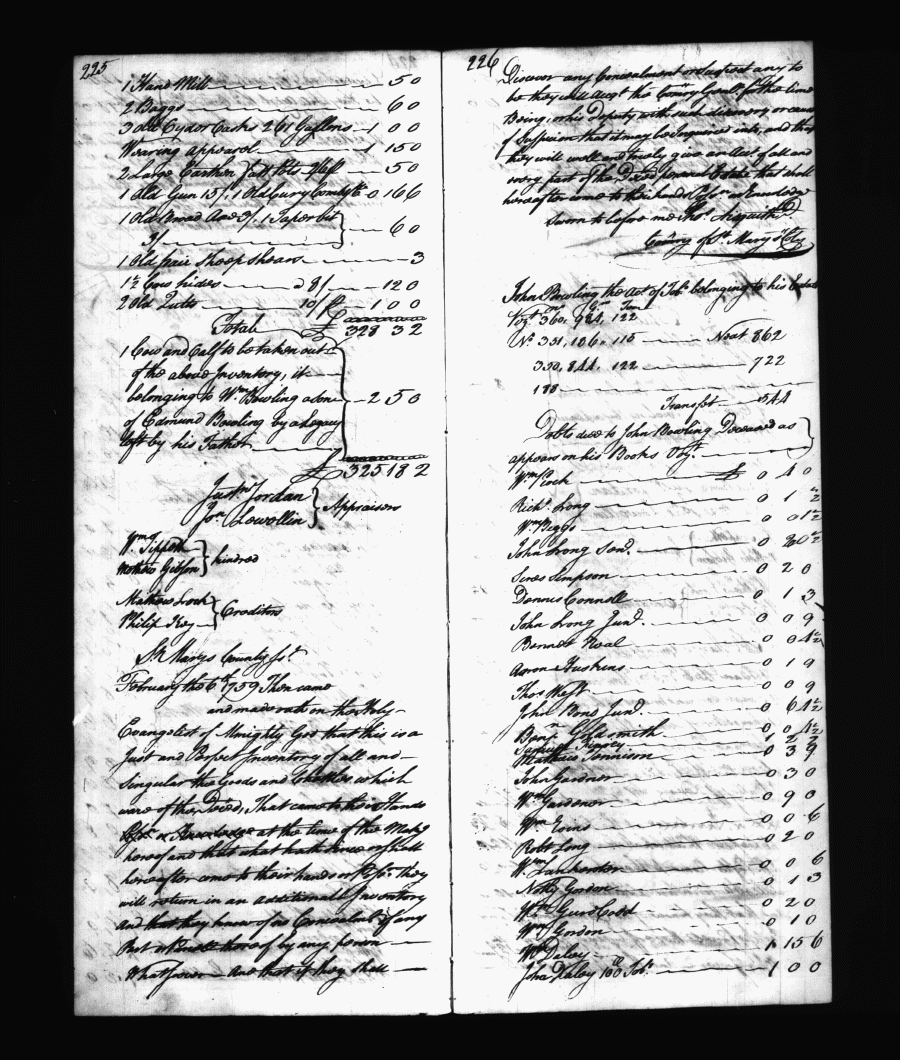 225
1 Hand Mill 5 0
2 Baggs 6 0
3 old Cyder Casks 261 Gallons 1 0 0
Wearing apparel 1 15 0
2 Large Earthen fatt Pots 5 0
1 Old Gun 15/. 1 Old 0 16 6
1 Old Broad Axe 3/. 1 Taper bit
3/ 6 0
1 Old pair Sheep shears 3
1½ Cow hides @ 8/ 12 0
2 Old 10/ 1 0 0
Total £ 328 3 2
1 Cow and Calf to be taken out
of the above Inventory, it
belonging to Wm Bowling a son 2 5 0
of Edmund Bowling by a Legacy
left by his Father
£ 325 18 2
Justn Jordan
Jon Lewellin Appraisers
Wm Tippett
Mathew Gibson kindred
Mathew Lock
Philip Key Creditors
St Marys County Sst
February the 6th 1759 Then came
and made oath on the Holy
Evangelist of Almighty God that this is a
Just and Perfect Inventory of all and
Singular the Goods and Chattles which
were of the Deced, That came to their Hands
Possn or Knowledge at the time of the Makg
hereof and that what hath since or shall
hereafter come to their hands or Possn they
will return in an additional Inventory
and that they know of no Concealmt of any
Part or Parcell thereof by any person
Whatsoever And that if they shall
226
Discover any Concealment or Suspect any to
be they will Acqt the Comry Genll for the time
Being, or his Deputy with such discovery or cause
of Suspicion that it may be Inquired into, and that
they will well and truly give an Acct of all and
every part of the Deced personal Estate that shall
hereafter come to their hands Possn or Knowledge
Sworn to before me Thos Aisquith D
Comry of St. Mary's Coty
John Bowling the Acct of Tobo belonging to his Estate
Vizt 360, 984, 122
No 351, 106, 116 Neat 862
350, 844, 122 722
188
Transfet 544
Debts due to John Bowling Deceased as
appears on his Books Vizt
Wm Cock £ 0 4 0
Richd Long 0 1 ½
Wm Biggs 0 0 1½
John Long Send.
Jeres Simpson 0 2 0
Dennis Connell 0 1 3
John Long Jund. 0 0 9
Bennet Neal 0 0 4½
Aaron Haskins 0 1 9
Thos West 0 0 9
John Bond Jund. 0 6 4½
Benjn Goldsmith 0 0 4½
Samuel 1 2 2
Mathew Tennison 0 3 9
John Gardner 0 3 0
Wm Gardener 0 9 0
Wm Evins 0 0 6
Robt Long 0 2 0
Wm 0 0 6
Notly Gordon 0 1 3
0 2 0
Wm Gordon 0 1 0
Wm Daley 1 15 6
John Daley 100 Tobo 1 0 0